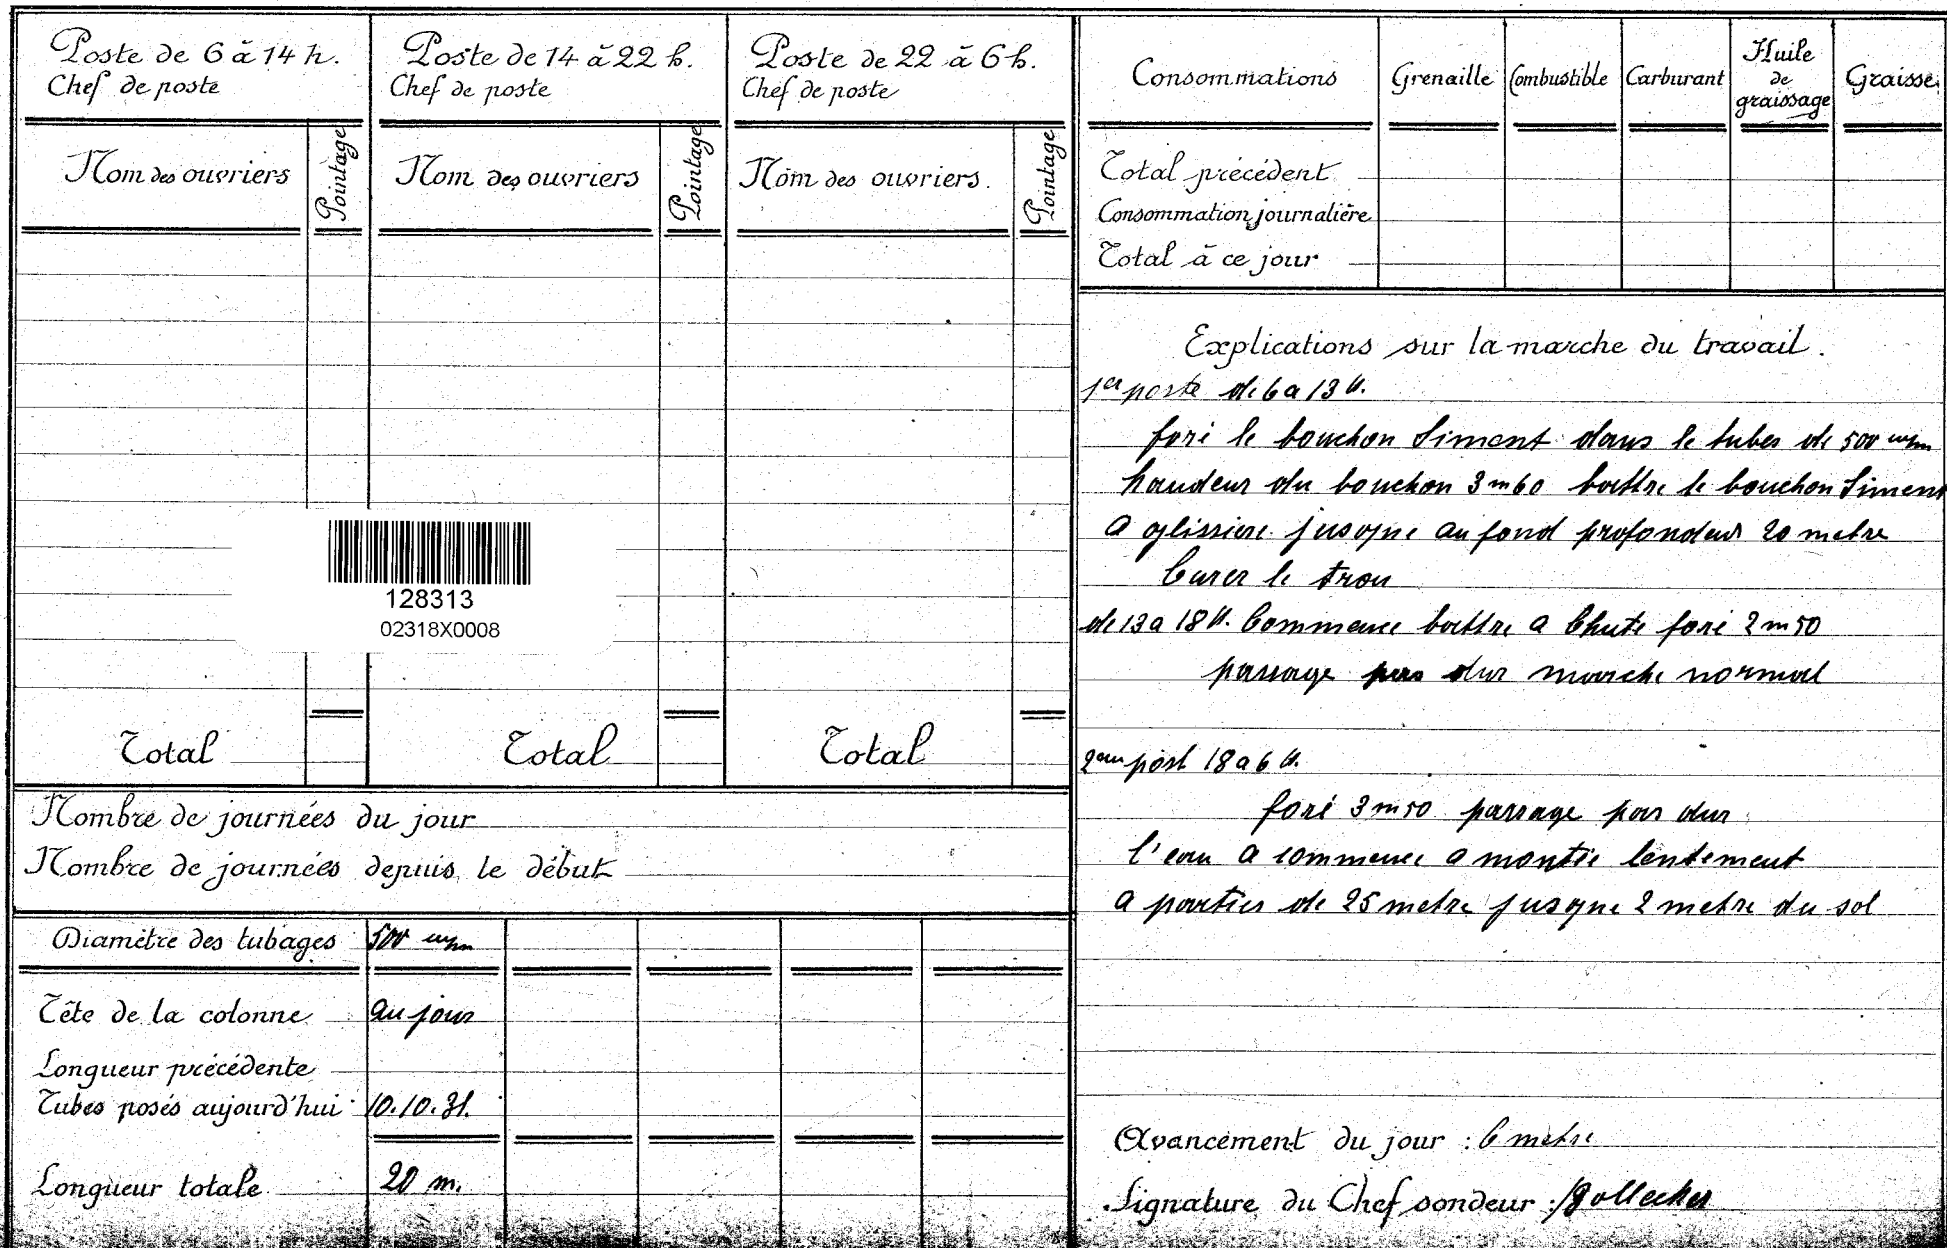 Poste de 6 à 14 h.
Chef de poste
Nom des ouvriers
Pointage
Total
Poste de 14 à 22 h.
Chef de poste
Nom des ouvriers
Pointage
Total
Poste de 22 à 6 h.
Chef de poste
Nom des ouvriers.
Pointage
Total
128313
02318X0008
Nombre de journées du jour
Nombre de journées depuis le début
Diamètre des tubages 500 m/m
Tête de la colonne au jour
Longueur précédente
Tubes posés aujourd'hui 10.10.31.
Longueur totale 20 m.
Consommations Grenaille Combustible Carburant Huile de graissage Graisse
Total précédent
Consommation journalière
Total à ce jour
Explications sur la marche du travail.
1er poste de 6 a 13 H.
foré le bouchon Siment dans le tubes de 500 m/m
haudeur du bouchon 3m60 battre le bouchon Siment
a glissiere jusque au fond profondeur 20 metre
Curer le trou
de 13 a 18 H. Commence battre a Chute foré 2m50
passage pas dur marche normal
2em post 18 a 6 H.
foré 3m50 passage pas dur
l'eau a commence a montée lentement
a parties de 25 metre jusque 2 metre du sol
Avancement du jour : 6 metre
Signature du Chef sondeur :